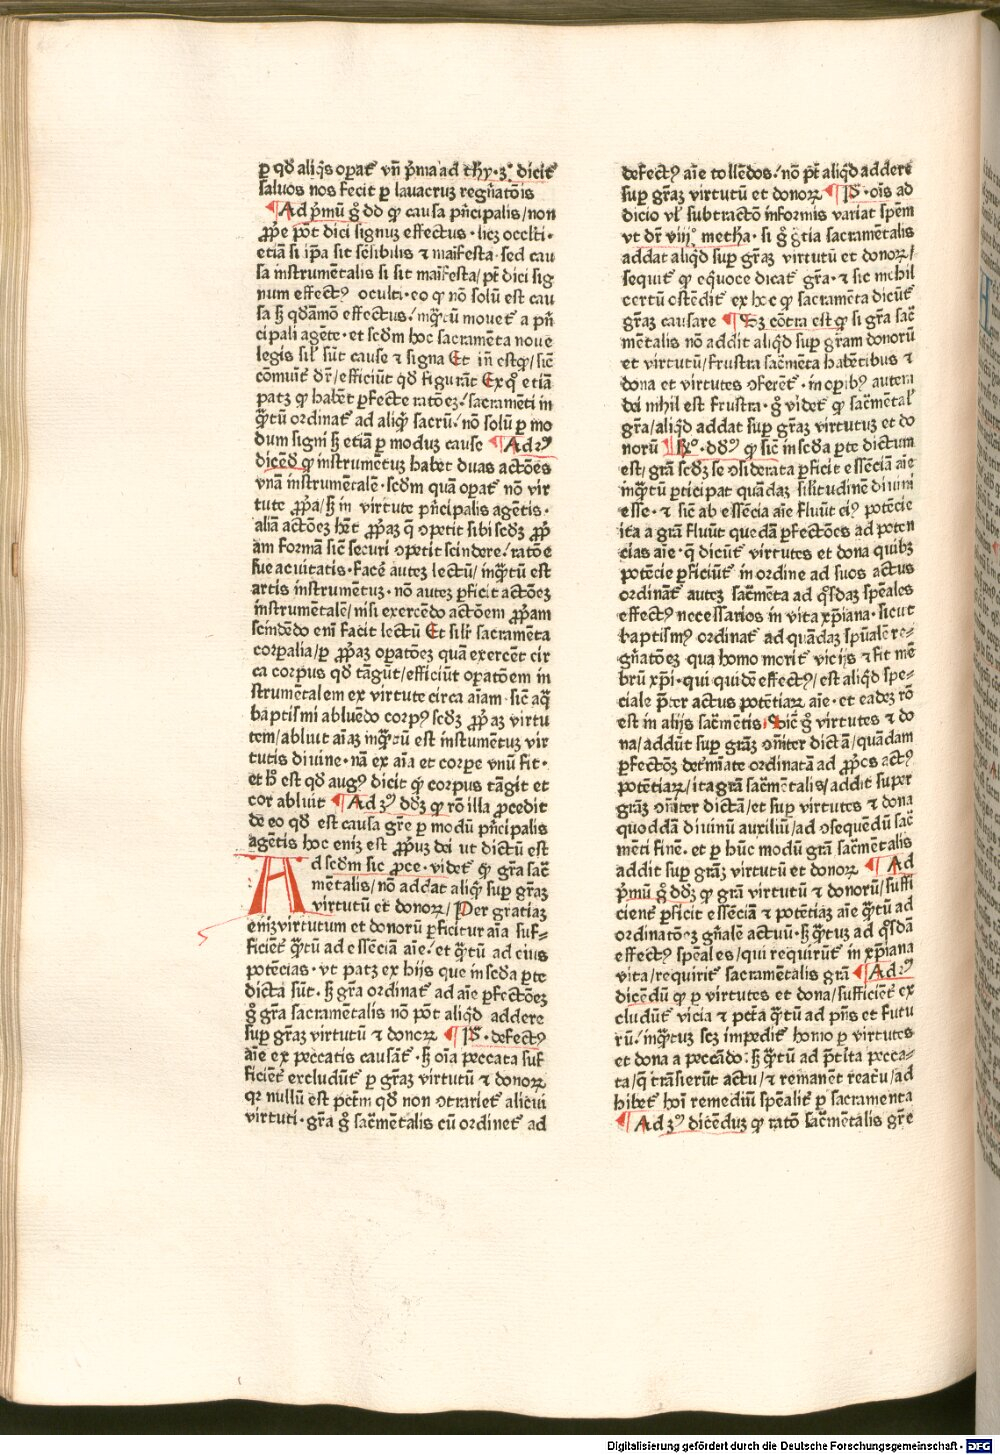 ꝑ qḋ aliq̇s oꝑat᷑ vñ p̃ma ad thy·3ͦ· dicit᷑
saluos nos fecit ꝑ lauacruꝫ regñatōis
¶ Ad p̃mū g̊ dd ꝙ causa pñcipalis/ non
ꝓp̃e pōt dici signuꝫ effectus· licꝫ occulti·
etiā si ip̃a sit sēsibilis ⁊ maīfesta· sed cau
sa instrumētalis si sit maīfesta/ pt̄ dici sig
num effectꝰ oculti· eo ꝙ nō solū est cau
sa ſꝫ qdāmō effectus/ inq̃tū mouet᷑ a pñ
cipali agēte· et scdm hoc sacramēta noue
legis sil̓ sūt cause ⁊ signa Et iñ est ꝙ/ sic̄
cōmuīt᷑ dr̄/ efficiūt qḋ figurāt Ex q̊ etiā
patꝫ ꝙ habēt ꝑfecte ratōeꝫ/ sacramēti in
q̃tū ordinat᷑ ad aliq̇ sacrū/ nō solū ꝑ mo
dum signi ſꝫ etiā ꝑ moduꝫ cause ¶ Ad 2ꝰ
dicēḋ ꝙ instrumētuꝫ habet duas actōes
vnā instrumētalē· scdm quā oꝑat᷑ nō vir
tute ꝓp̃a/ ſꝫ in virtute pñcipalis agētis·
aliā actōeꝫ hꝫ ꝓp̃aꝫ q̄ ꝯpetit sibi scdꝫ ꝓp̃
am formā sic̄ securi ꝯpetit scindere/ ratōe
sue acuitatis· facē auteꝫ lectū/ inq̃tū est
artis instrumētuꝫ· nō autēꝫ ꝑficit actōeꝫ
instrumētalē/ nisi exercēdo actōem ꝓp̃am
scindēdo eni᷑ facit lectū Et sil̓r sacramēta
corꝑalia/ ꝑ ꝓp̃aꝫ oꝑatōeꝫ quā exercēt cir
ca corpus qḋ tāgūt/ efficiūt oꝑatōem in
strumētalem ex virtute circa aīam· sic̄ aq̄
baptismi abluēdo corpꝰ scdꝫ ꝓp̃aꝫ virtu
tem/ abluit aīaꝫ inq̃tū est instumētuꝫ vir
tutis diuine· nā ex aīa et corpe vnū fit·
et h̄ est qḋ augꝰ dicit ꝙ corpus tāgit et
cor abluit ¶ Ad 3ꝰ dḋꝫ ꝙ rō illa ꝓcedit
de eo qḋ est causa gr̄e ꝑ modū pñcipalis
agētis hoc eniꝫ est ꝓp̃uꝫ dei ut dictū est
Ad scdm sic ꝓce· videt᷑ ꝙ gr̄a sac̄
mētalis/ nō addat aliq̇ suꝑ gr̃aꝫ
virtutū et donoꝝ/ Per gratiaꝫ
eniꝫ virtutum et donorū ꝑficitur aīa suf⸗
ficiēt᷑ q̃tū ad essēciā aīe/ et q̃tū ad eius
potēcias· vt patꝫ ex hijs que in scḋa ꝑte
dicta sūt· ſꝫ gr̄a ordinat᷑ ad aīe ꝑfectōeꝫ
g̊ gr̄a sacramētalis nō pōt aliqḋ addere
suꝑ gr̃aꝫ virtutū ⁊ donoꝝ ¶ P̃· defectꝰ
aīe ex peccatis causāt᷑· ſꝫ oīa peccata suf
ficiēt᷑ excludūt᷑ ꝑ gr̃aꝫ virtutū ⁊ donoꝝ
qꝛ nullū est pctm̄ qḋ non ꝯtrariet᷑ alicui
virtuti· gr̄a g̊ sac̄mētalis cū ordinet᷑ ad
defectꝰ aīe tollēdos/ nō pt̄ aliqḋ addere
suꝑ gr̃aꝫ virtutū et donoꝝ ¶ P̃· oīs ad
dicio vl̓ subtractō informis variat spēm
vt dr̄ viijͦ metha· si g̊ gr̄tia sacramētalis
addat aliqḋ suꝑ gr̃aꝫ virtutū et donoꝝ/
sequit᷑ ꝙ eq̇uoce dicat᷑ gr̄a· ⁊ sic nichil
certū ostēdit᷑ ex hoc ꝙ sacramēta dicūt᷑
gr̃aꝫ causare ¶ Sꝫ cōtra est ꝙ si gr̄a sac̄
mētalis nō addit aliqḋ suꝑ gr̄am donorū
et virtutū/ frustra sac̄mēta habētibus ⁊
dona et virtutes ꝯferēt᷑· in oꝑibꝰ autem
dei nihil est frustra· g̊ videt᷑ ꝙ sac̄mētal̓
gr̄a/ aliqḋ addat suꝑ gr̃aꝫ virtutuꝫ et do
norū ¶ Rͦ· dḋꝰ ꝙ sic̄ in scḋa ꝑte dictum
est/ gr̄a scdꝫ se ꝯsiderata ꝑficit essēciā aīe
inq̃tū ꝑticipat quādaꝫ silitudinē diuini
esse· ⁊ sic̄ ab essēcia aīe fluūt eiꝰ potēcie
ita a gr̄a fluūt quedā ꝑfectōes ad poten
cias aīe· q̄ dicūt᷑ virtutes et dona quibꝫ
potēcie ꝑficiūt᷑ in ordine ad suos actus
ordinātr᷑ auteꝫ sac̄mēta ad q̇sdaꝫ spēales
effectꝰ necessarios in vita xp̄iana· sicut
baptismꝰ ordinat᷑ ad quādaꝫ spūalē re⸗
gñatōeꝫ qua homo morit᷑ vicijs ⁊ fit mē
brū xp̄i· qui quidē effectꝰ/ est aliqḋ spe⸗
ciale p̃ter actus potētiaꝝ aīe· et eadeꝫ rō
est in alijs sac̄mētis/ Sic̄ g̊ virtutes ⁊ do
na/ addūt suꝑ gr̃aꝫ ꝯm̄iter dictā/ quādam
ꝑfectōꝫ det᷑miate ordinatā ad ꝓp̃os actꝰ
potētiaꝝ/ ita gr̄a sac̄mētalis/ addit super
gr̃aꝫ ꝯm̄iter dictā/ et suꝑ virtutes ⁊ dona
quoddā diuinū auxiliū/ ad ꝯsequēdū sac̄
mēti finē· et ꝑ hūc modū gr̄a sac̄mētalis
addit suꝑ gr̃aꝫ virtutū et donoꝝ ¶ Ad
p̃mū g̊ dḋꝫ ꝙ gr̄a virtutū ⁊ donorū/ suffi
cient᷑ ꝑficit essēciā ⁊ potētiaꝫ aīe q̃tū ad
ordinatōeꝫ gñalē actuū· ſꝫ q̃tuꝫ ad q̇sdā
effectꝰ spēales/ qui requirūt᷑ in xp̄iana
vita/ requirit᷑ sacramētalis gr̄a ¶ Ad 2ꝰ
dicēdū ꝙ ꝑ virtutes et dona/ sufficiēt᷑ ex
cludūt᷑ vicia ⁊ pctā q̃tū ad pñs et futu
rū/ inq̃tuꝫ scꝫ impedit᷑ homo ꝑ virtutes
et dona a peccādo: ſꝫ q̃tū ad p̃tita pecca⸗
ta/ q̄ trāsierūt actu/ ⁊ remanēt reatu/ ad
hibet᷑ hoī remediū spēalit᷑ ꝑ sacramenta
¶ Ad 3ꝰ dicēduꝫ ꝙ ratō sac̄mētalis gr̄e
Digitalisierung gefördert durch die Deutsche Forschungsgemeinschaft - DFG